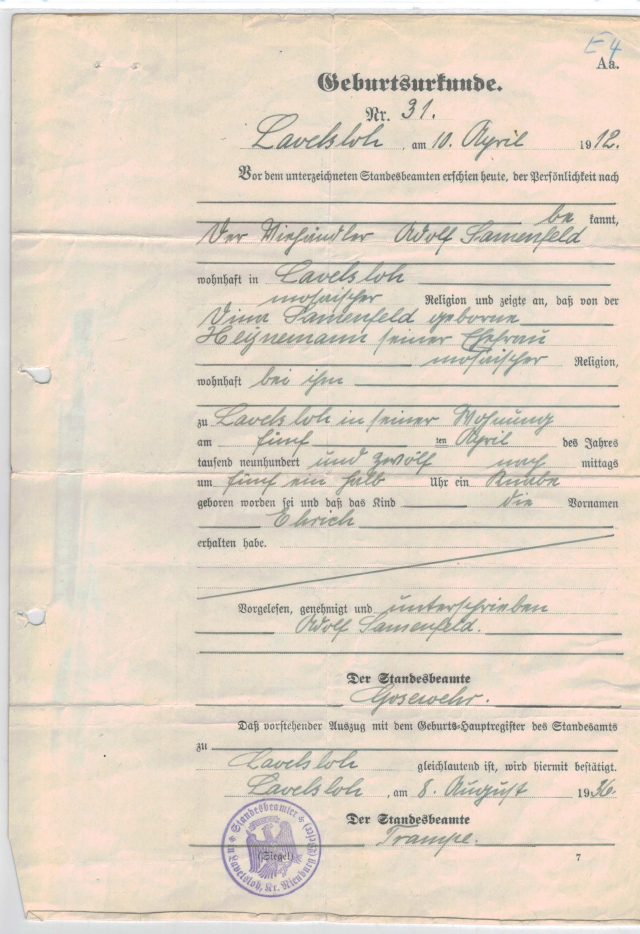 E 4
Aa.
Geburtsurkunde.
Nr. 31.
Lavelsloh, am 10. April 1912.
Vor dem unterzeichneten Standesbeamten erschien heute, der Persönlichkeit nach
be kannt,
Der Viehändler Adolf Lamenfeld
wohnhaft in Lavelsloh
mosaischer Religion und zeigte an, daß von der
Lamenfeld geborne
Heijnemann seiner Ehefrau
mosaischer Religion,
wohnhaft bei ihm
zu Lavelsloh in seiner Wohnung
am fünf ten April des Jahres
tausend neunhundert und zwölf nach mittags
um fünf ein halb Uhr ein Knabe
geboren worden sei und daß das Kind die Vornamen
Ehrich
erhalten habe.
Vorgelesen, genehmigt und unterschrieben
Adolf Lamenfeld.
Der Standesbeamte
Gosewehr.
Daß vorstehender Auszug mit dem Geburts-Hauptregister des Standesamts
zu
Lavelsloh gleichlautend ist, wird hiermit bestätigt.
Lavelsloh, am 8. August 1936.
Der Standesbeamte
Trampe.
(Siegel)
Standesbeamter
in Lavelsloh, Kr. Nienburg (Weser)
7